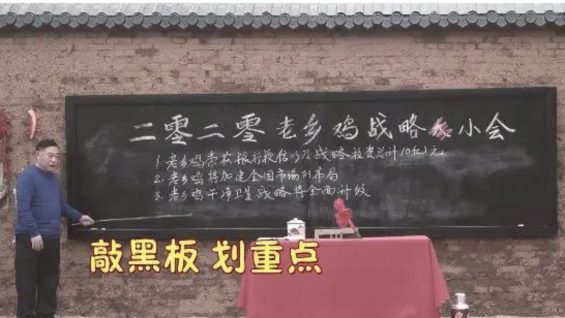 二零二零老乡鸡战略小会
1.老乡鸡荣获银行授信以及战略投资总计10亿元
2.老乡鸡将加速全国市场的布局
3.老乡鸡干净卫生战略将全面升级
敲黑板 划重点